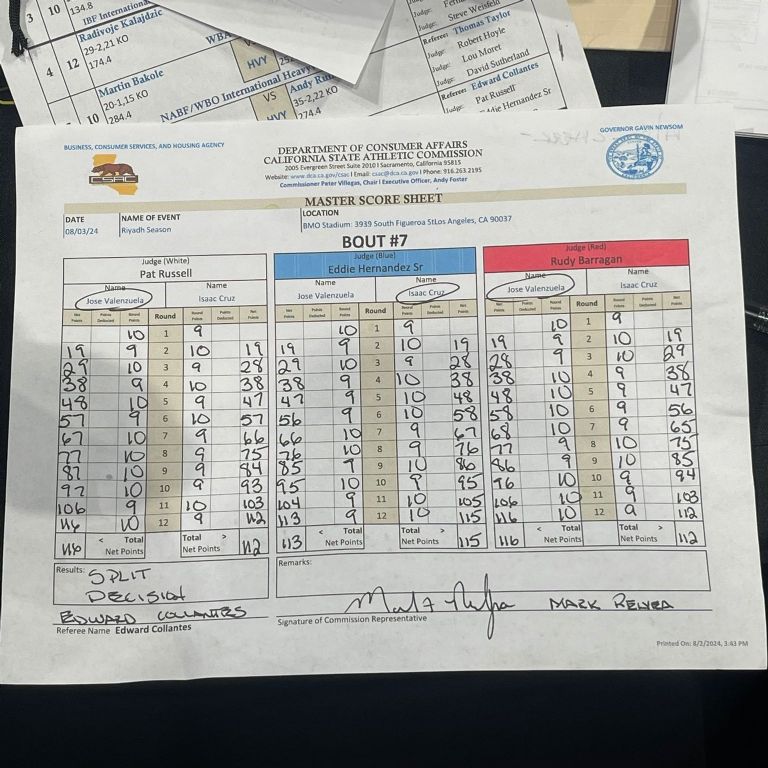 3 10 134.8
IBF International
Radivoje Kalajdzic
4 12 29-2,21 KO
174.4
WBA
Martin Bakole
20-1,15 KO
10 284.4
NABF/WBO International Heavy
HVY
VS
HVY
Andy Rui
35-2,22 KO
274.4
Judge: Steve Weisfel
Referee: Thomas Taylor
Judge: Robert Hoyle
Judge: Lou Moret
Judge: David Sutherland
Referee: Edward Collantes
Judge: Pat Russell
Eddie Hernandez Sr
BUSINESS, CONSUMER SERVICES, AND HOUSING AGENCY
GOVERNOR GAVIN NEWSOM
CSAC
DEPARTMENT OF CONSUMER AFFAIRS
CALIFORNIA STATE ATHLETIC COMMISSION
2005 Evergreen Street Suite 2010 | Sacramento, California 95815
Website: www.dca.ca.gov/csac | Email: csac@dca.ca.gov | Phone: 916.263.2195
Commissioner Peter Villegas, Chair | Executive Officer, Andy Foster
MASTER SCORE SHEET
DATE NAME OF EVENT LOCATION
08/03/24 Riyadh Season BMO Stadium: 3939 South Figueroa StLos Angeles, CA 90037
BOUT #7
Judge (White) Judge (Blue) Judge (Red)
Pat Russell Eddie Hernandez Sr Rudy Barragan
Name Name Name Name Name Name
Jose Valenzuela Isaac Cruz Jose Valenzuela Isaac Cruz Jose Valenzuela Isaac Cruz
Net Points Points Deducted Round Points Round Round Points Points Deducted Net Points Net Points Points Deducted Round Points Round Round Points Points Deducted Net Points Net Points Points Deducted Round Points Round Round Points Points Deducted Net Points
10 1 9 10 1 9 10 1 9
19 9 2 10 19 19 9 2 10 19 19 9 2 10 19
29 10 3 9 28 29 10 3 9 28 28 9 3 10 29
38 9 4 10 38 38 9 4 10 38 38 10 4 9 38
48 10 5 9 47 47 9 5 10 48 48 10 5 9 47
57 9 6 10 57 56 9 6 10 58 58 10 6 9 56
67 10 7 9 66 66 10 7 9 67 68 10 7 9 65
77 10 8 9 75 76 10 8 9 76 77 9 8 10 75
87 10 9 9 84 85 9 9 10 86 86 9 9 10 85
97 10 10 9 93 95 10 10 9 95 96 10 10 9 94
106 9 11 10 103 104 9 11 10 105 106 10 11 9 103
116 10 12 9 112 113 9 12 10 115 116 10 12 9 112
116 < Total Net Points Total > Net Points 112 113 < Total Net Points Total > Net Points 115 116 < Total Net Points Total > Net Points 112
Results: SPLIT
DECISION
Remarks:
EDWARD COLLANTES
Referee Name Edward Collantes
MARK RELYEA
Signature of Commission Representative
Printed On: 8/2/2024, 3:43 PM